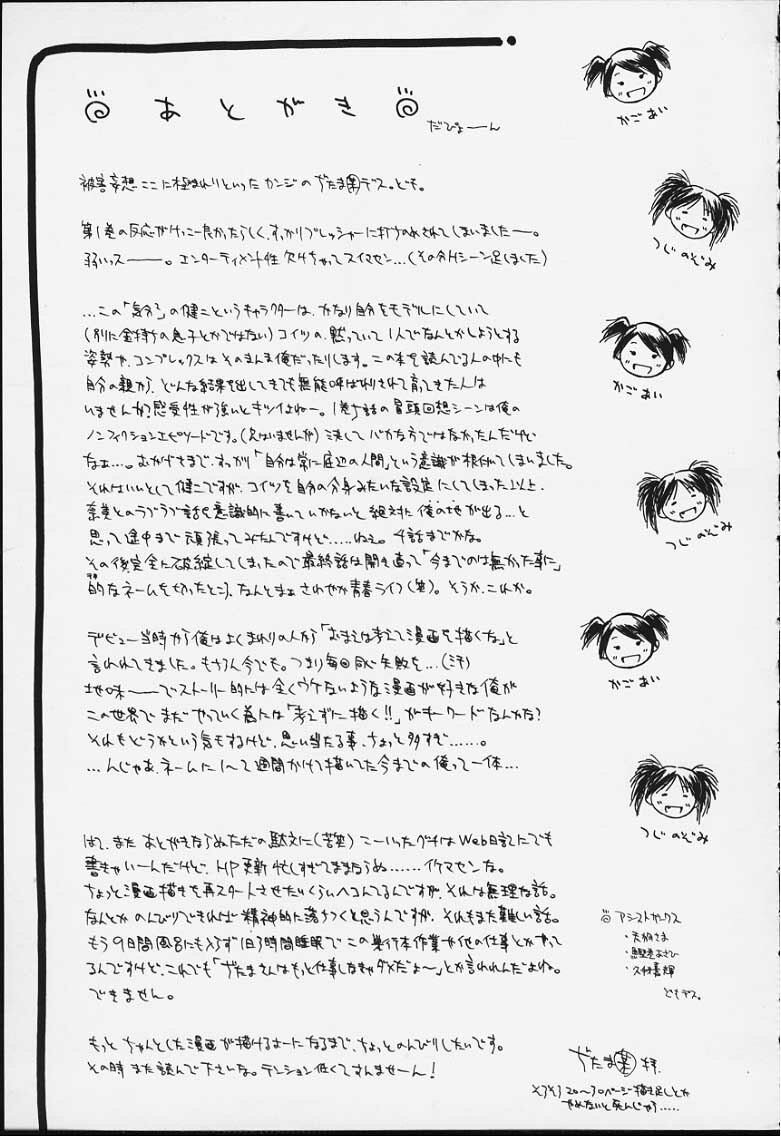 あとがき
だぴょーん
被害妄想ここに極まれりといったカンジのぢたま㊎デス。ども。
第1巻の反応がけっこー良かったらしく、すっかりプレッシャーに打ちのめされてしまいましたー。
弱いっスー。エンターティメント性欠けちゃってスイマセン…(その分Hシーン足しました)
…この「気分3」の健二というキャラクターは、かなり自分をモデルにしていて
(別に金持ちの息子とかではない)コイツの、黙っていて1人でなんとかしようとする
姿勢や、コンプレックスはそのまんま俺だったりします。この本を読んでる人の中にも
自分の親から、どんな結果を出してきても無能呼ばわりされて育ってきた人は
いませんか?感受性が強いとキツイよねー。1巻5話の冒頭回想シーンは俺の
ノンフィクションエピソードです。(兄はいませんが)決してバカな方ではなかったんだけど
なェ…。おかげさまで、すっかり「自分は常に底辺の人間」という意識が根付いてしまいました。
それはいいとして健二ですが、コイツを自分の分身みたいな設定にしてしまった以上、
奈美とのラブラブ話を意識的に書いていかないと絶対に俺の地が出る…と
思って途中まで頑張ってみたんですけど……ねぇ。4話までかな。
その後完全に破綻してしまったので最終話は開き直って「今までのは無かった事に」
的なネームを切ったところ、なんとまェさわやか青春ライフ(笑)。そうか、これか。
デビュー当時から俺はよくまわりの人から「おまえは考えて漫画を描くな」と
言われてきました。もちろん今でも。つまり毎回同じ失敗を…(ミ汗)
地味ーでストーリー的には全くウケないような漫画が好きな俺が
この世界でまだやっていく為には「考えずに描く!!」がキーワードなんかな?
それもどうかという気もするけど、思い当たる事、ちょっと多すぎ……。
…んじゃあ、ネームに1〜2週間かけて描いてた今までの俺って一体…
はて、またあとがきならぬただの駄文に(苦笑)こーいったグチはWeb日記にでも
書きゃいーんだけど、HP更新忙しすぎてままならぬ……イケマセンな。
ちょっと漫画描きを再スタートさせたいくらいヘコんでるんですが、それは無理な話。
なんとかのんびりできれば精神的に落ちつくと思うんですが、それもまた難しい話。
もう9日間風呂にも入らず1日3時間睡眠でこの単行本作業や他の仕事とかやって
るんですけど、これでも「ぢたまさんはもっと仕事しなきゃダメだよ〜」とか言われんだよね。
できません。
もっとちゃんとした漫画が描けるよーになるまで、ちょっとのんびりしたいです。
その時また読んで下さいな。テンション低くてすんませーん!
かごあい
つじのぞみ
かごあい
つじのぞみ
かごあい
つじのぞみ
アシストガークス
どもデス。
ぢたま
そろそろ20〜30ページ描き足しとか
やめないと死んじゃう……